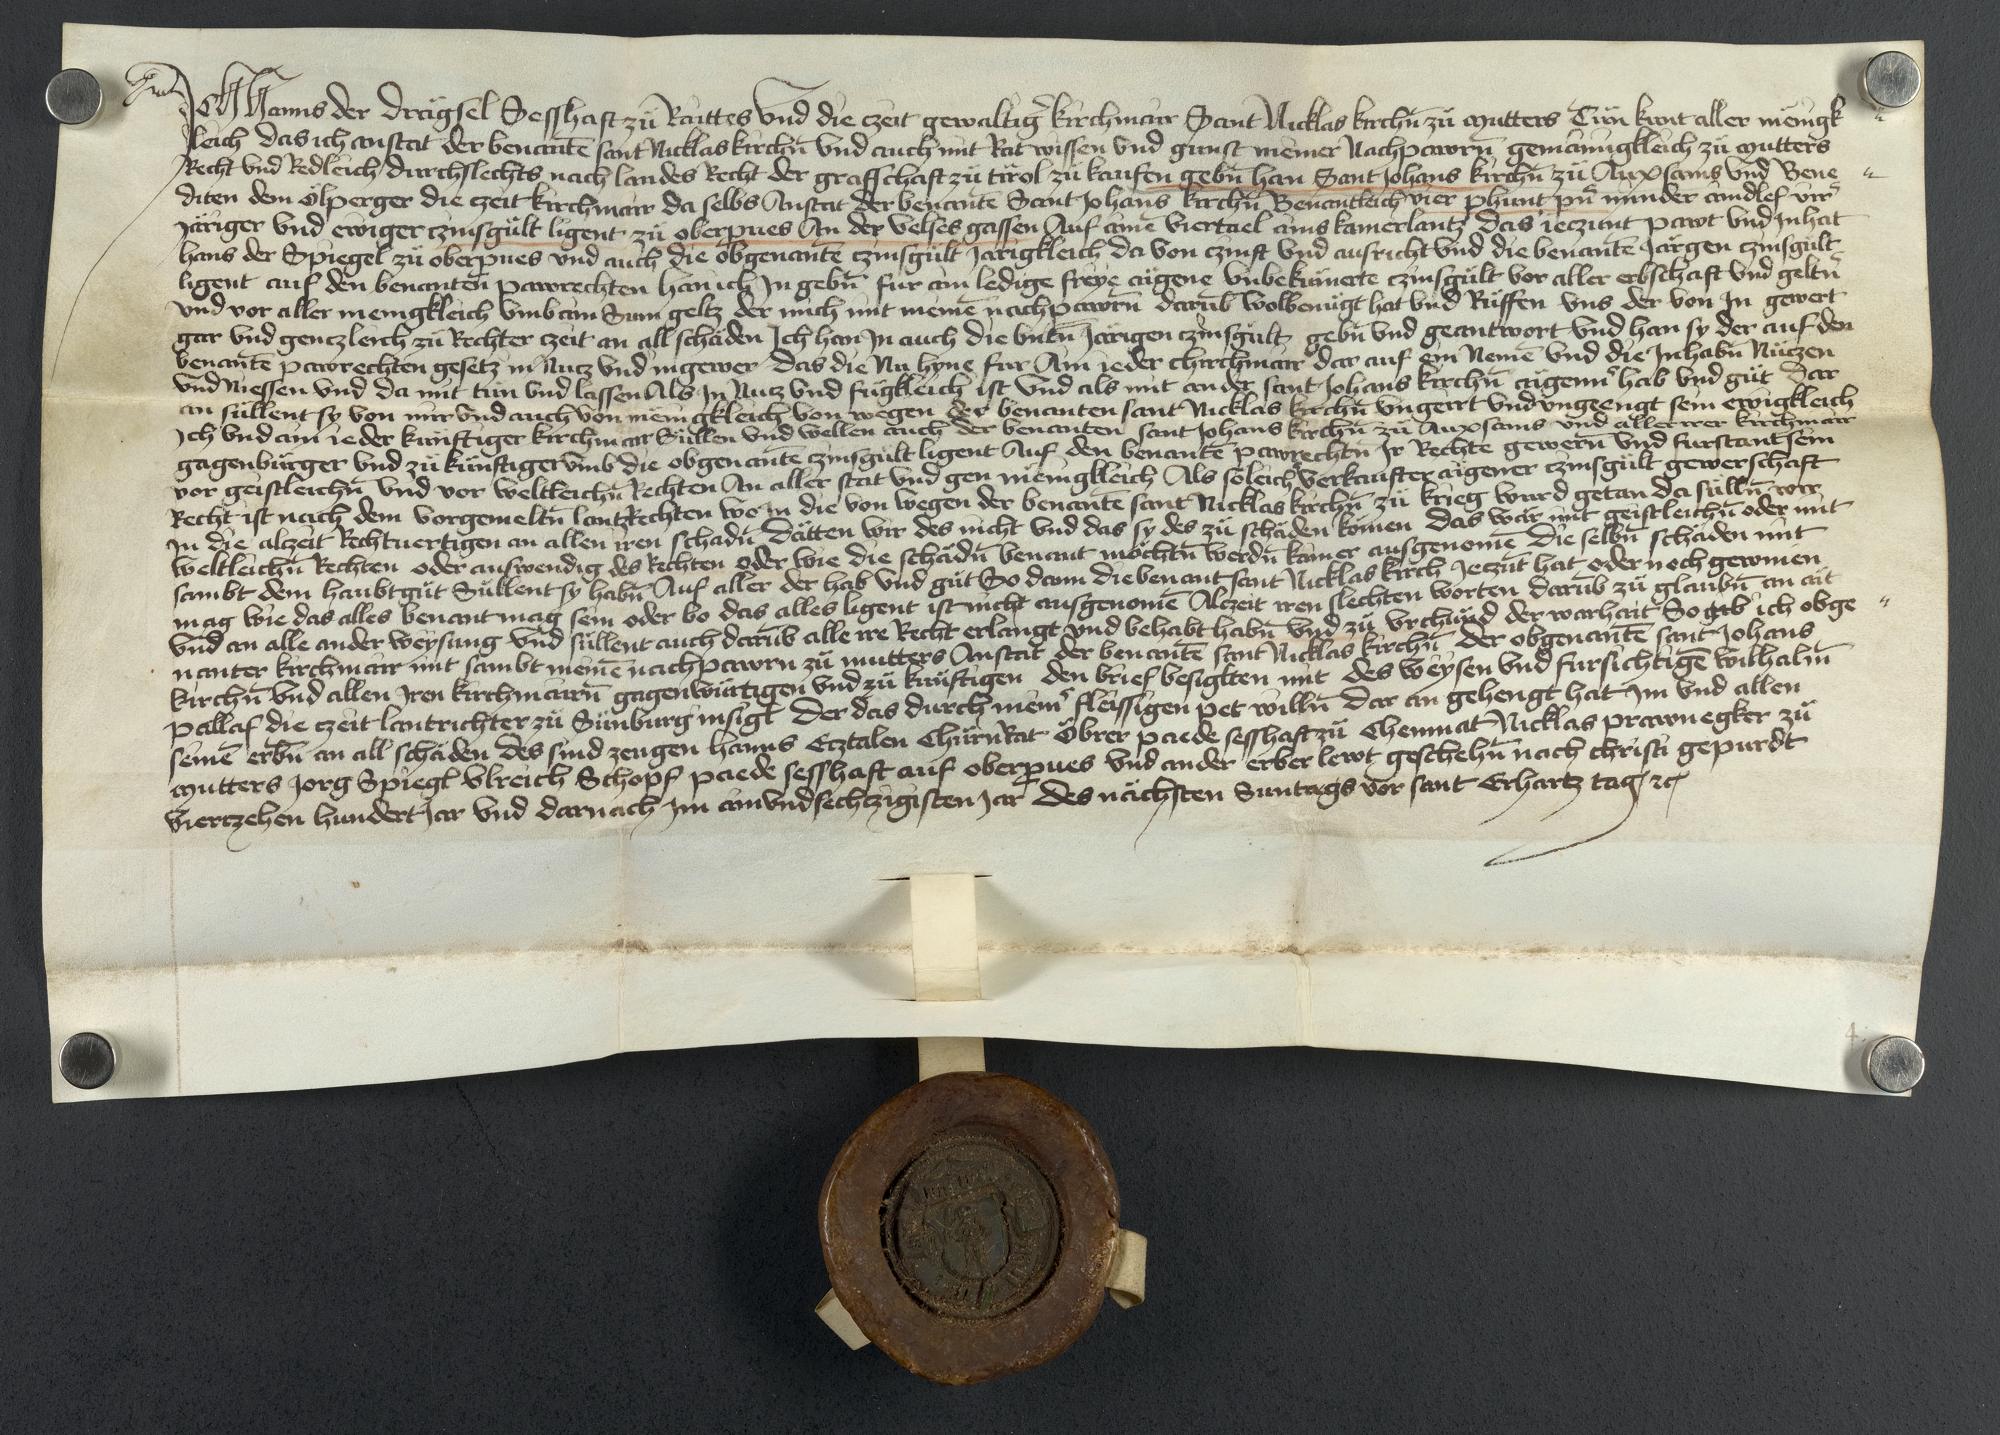 Ich Hanns der drägsel Sesshaft zů Raittes vnd die czeit gewaltigꝰ kirchmair Sant Nicklas kirchn̄ zů Mutters Tůn kunt aller mënigk
leich das ich anstat der benantē sant Nicklas kirchn̄ vnd auch mit Rat wissen vnd gunst meiner Nachpawrn̄ gemainigkleich zů mutters
Recht vnd Redleich durchslechts nach landes Recht der graffschaft zů tirol zů kaufen gebn̄ han Sant Johans kirchn̄ zů Auxsams vnd Bene
diten dem ölperger die czeit kirchmair da selbs Anstat der benantē Sant Johans kirchn̄ Benantleich vier phunt pn̄ minder aindlef virꝰ
järiger vnd ewiger czinsgült ligent zů oberpues An der velses gassen Auf aimē viertael ains kamerlantz das ieczunt pawt vnd Inhat
hans der Spiegel zů oberpues vnd auch die obgenantē czinsgült Järigkleich da von czinst vnd ausricht vnd die benantē Järgen czinsgült
ligent auf den benanten pawrechten han ich In gebn̄ für ain ledige freye aigene vnbekümerte czinsgült vor aller erbschaft vnd geltn̄
vnd vor aller menigkleich vmb ain Sum geltz der mich mit meinē nachpawrn̄ darūb wolbenügt hat vnd Rüffen vns der von In gewert
gar vnd genczleich zů Rechter czeit an all schäden Ich han In auch die bntn̄ Järigen czinsgült gebn̄ vnd geantwort vnd han sy der auf den
benantē pawrechten gesetz in Nucz vnd in gewer das die Nu hyne fur Ain ieder chirchmair dar auf ein Nemē vnd die Inhabn̄ Nüczen
vnd Niessen vnd da mit tün vnd lassen Als In Nutz vnd fügkleich ist vnd als mit ander sant Johans kirchn̄ aigennꝰ hab vnd güt Dar
an süllent sy von mir vnd auch von mënigkleich von wegen der benanten sant Nicklas kirchn̄ vngeirrt vnd vngeengt sein ewigkleich
Ich vnd ain ieder künftiger kirchmair Süllen vnd wellen auch der benanten sant Johans kirchn̄ zů Auxsams vnd aller irer kirchmair
gagenbürger vnd zů künftiger vmb die obgenantē czinsgült ligent Auf den benantē pawrechtn̄ Ir Rechte gewern̄ vnd fürstant sein
vor geistleichn̄ vnd vor weltleichn̄ Rechten An aller stat vnd gen mënigkleich Als soleich verkaufter aigener czinsgült gewerschaft
Recht ist nach dem vorgemeltn̄ lantzRechten wo In die von wegen der benantē sant Nicklas kirchn̄ zů krieg wurd getan da sülln̄ wir
In die alczeit Rechtuertigen an allen iren schadn̄ Dätten wir des nicht vnd das sy des zů schäden kömen das wär mit geistleichn̄ oder mit
weltleichn̄ Rechten oder auswendig des Rechten oder wie die schädn̄ benant möchtn̄ werdn̄ kainer ausgenomē Die selbn̄ schäden mit
sambt dem haubtgüt Süllent sy habn̄ Auf aller der hab vnd güt So dann die benant sant Nicklas kirch Jeczūt hat oder noch gewinen
mag wie das alles benant mag sein oder bo das alles ligent ist nicht ausgenomē Alczeit iren slechten worten darūb zů glaubn̄ an ait
vnd an alle ander weysung vnd süllent auch darūb alle ire Recht erlangt vnd behabt habn̄ vnd zů vrchünd der warhait So gib ich obge
nanter kirchmair mit sambt meinē nachpawrn zů mutters Anstat der benantē sant Nicklas kirchn̄ der obgenantē sant Johans
kirchn̄ vnd allen Iren kirchmairn̄ gagenwürtigen vnd zů künftigen den brief besiglten mit des weysen vnd fürsichtigē wilhalm̄
pallaf die czeit lantrichter zů Sünburg insigl Der das durch meinꝰ fleissigen pet willn̄ dar an gehengt hat Im vnd allen
seinē erbn̄ an all schäden des sind zeugen hanns Etztalen Chürn̄Rat Öbrer paede sesshaft zů Chemnat Nicklas prawnegker zů
mutters Jorg Spiegl vlreich Schopf paede sesshaft auf oberpues vnd ander erber lewt geschehn̄ nach christi gepurdt
viertzehen hundert Jar vnd darnach Im ainvndsechzigisten Jar Des nächsten Suntags vor sant Erhartz tag ꝛc
4.